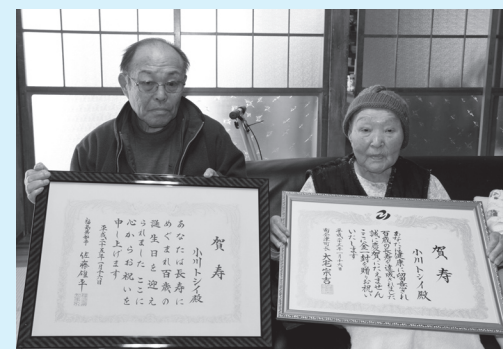 賀寿
小川トシイ殿
あなたは長寿に
めぐまれ百歳の
誕生日を迎え
られましたここに
心からお祝いを
申し上げます
福島県知事 佐藤雄平
賀寿
小川トシイ殿
あなたは健康に留意され
百歳の長寿を達成されました
誠に慶賀にたえません
ここに金一封を贈りお祝い
いたします
南会津町長 大宅宗吉